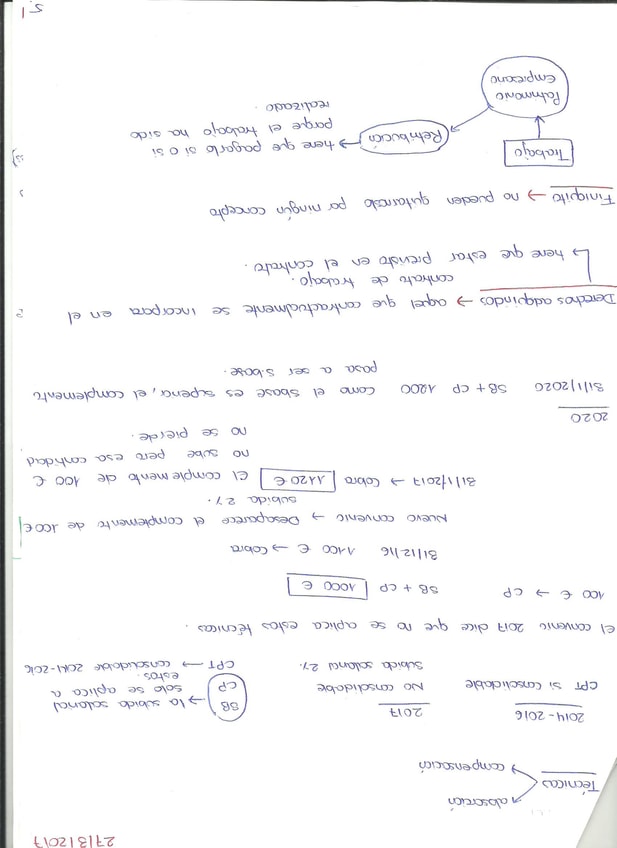 27/3/2017
Técnicas
absorción
compensación
2014-2016
CPT si consolidable
2017
No consolidable
Subida salarial 2%
SB
CP
→ la subida salarial
solo se aplica a
estos.
CPT → consolidable 2014-2016
El convenio 2017 dice que no se aplica estas técnicas.
100 € → CP
SB + CP 1000 €
31/12/16 1100 € → Cobra
Nuevo convenio → Desaparece el complemento de 100€
subida 2%.
31/1/2017 → Cobra 1120 € El complemento de 100 €
no sube pero esa cantidad
no se pierde.
2020
31/1/2020 SB + CP 1200 como el sbase es superior, el complemento
pasa a ser s.base.
Derechos adquiridos → aquel que contractualmente se incorpora en el
contrato de trabajo.
↳ tiene que estar previsto en el contrato.
Finiquito → no pueden quitarselo por ningún concepto
Trabajo
Patrimonio
Empresario
Retribución
→ tiene que pagarlo si o si
porque el trabajo ha sido
realizado.